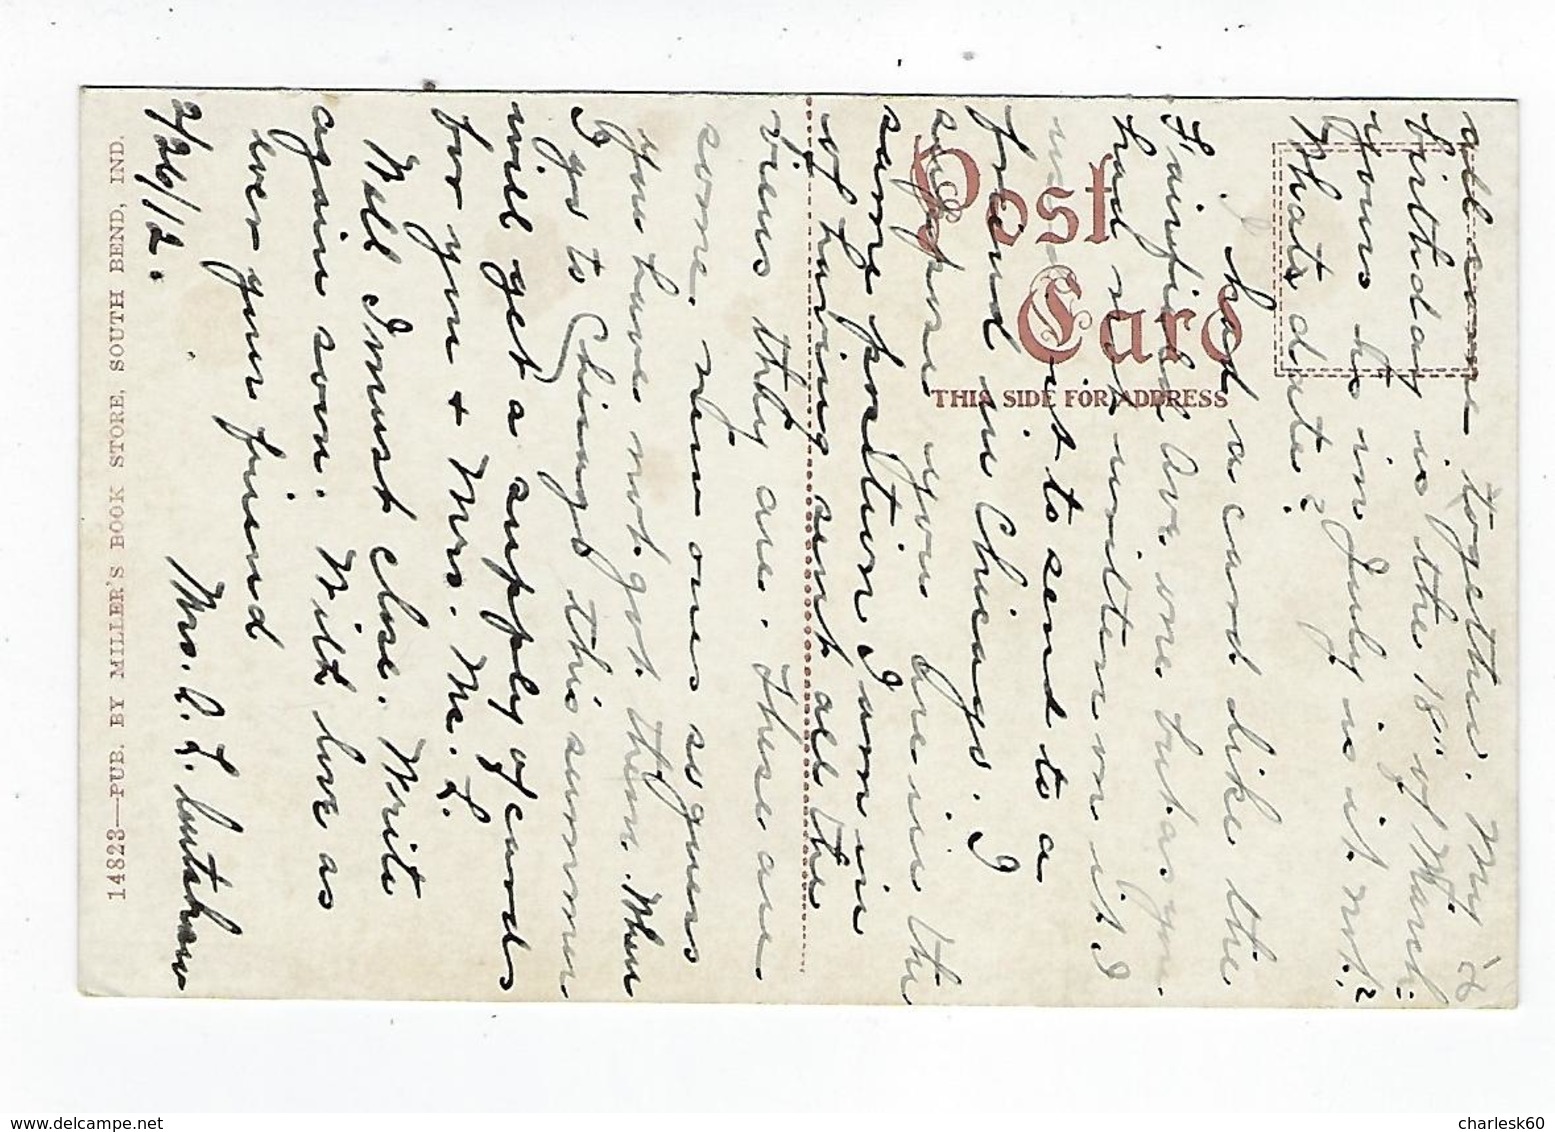 all came together. My
birthday is the 18" of March.
yours is in July is it not?
Whats date?
I had a card like the
Fairfield Ave one but as you
had not written on it I
used it to send to a
friend in Chicago. I
suppose you are in the
same position I am in
of having sent all the
views they are. These are
some new ones so guess
you have not got them. When
I go to Chicago this summer
will get a supply of cards
for you + Mrs. Mc. L.
Well I must close. Write
again soon. With love as
ever your friend
Mrs. A. L.
2/26/12.
POST CARD
THIS SIDE FOR ADDRESS
14823—PUB. BY MILLER'S BOOK STORE, SOUTH BEND, IND.
charlesk60